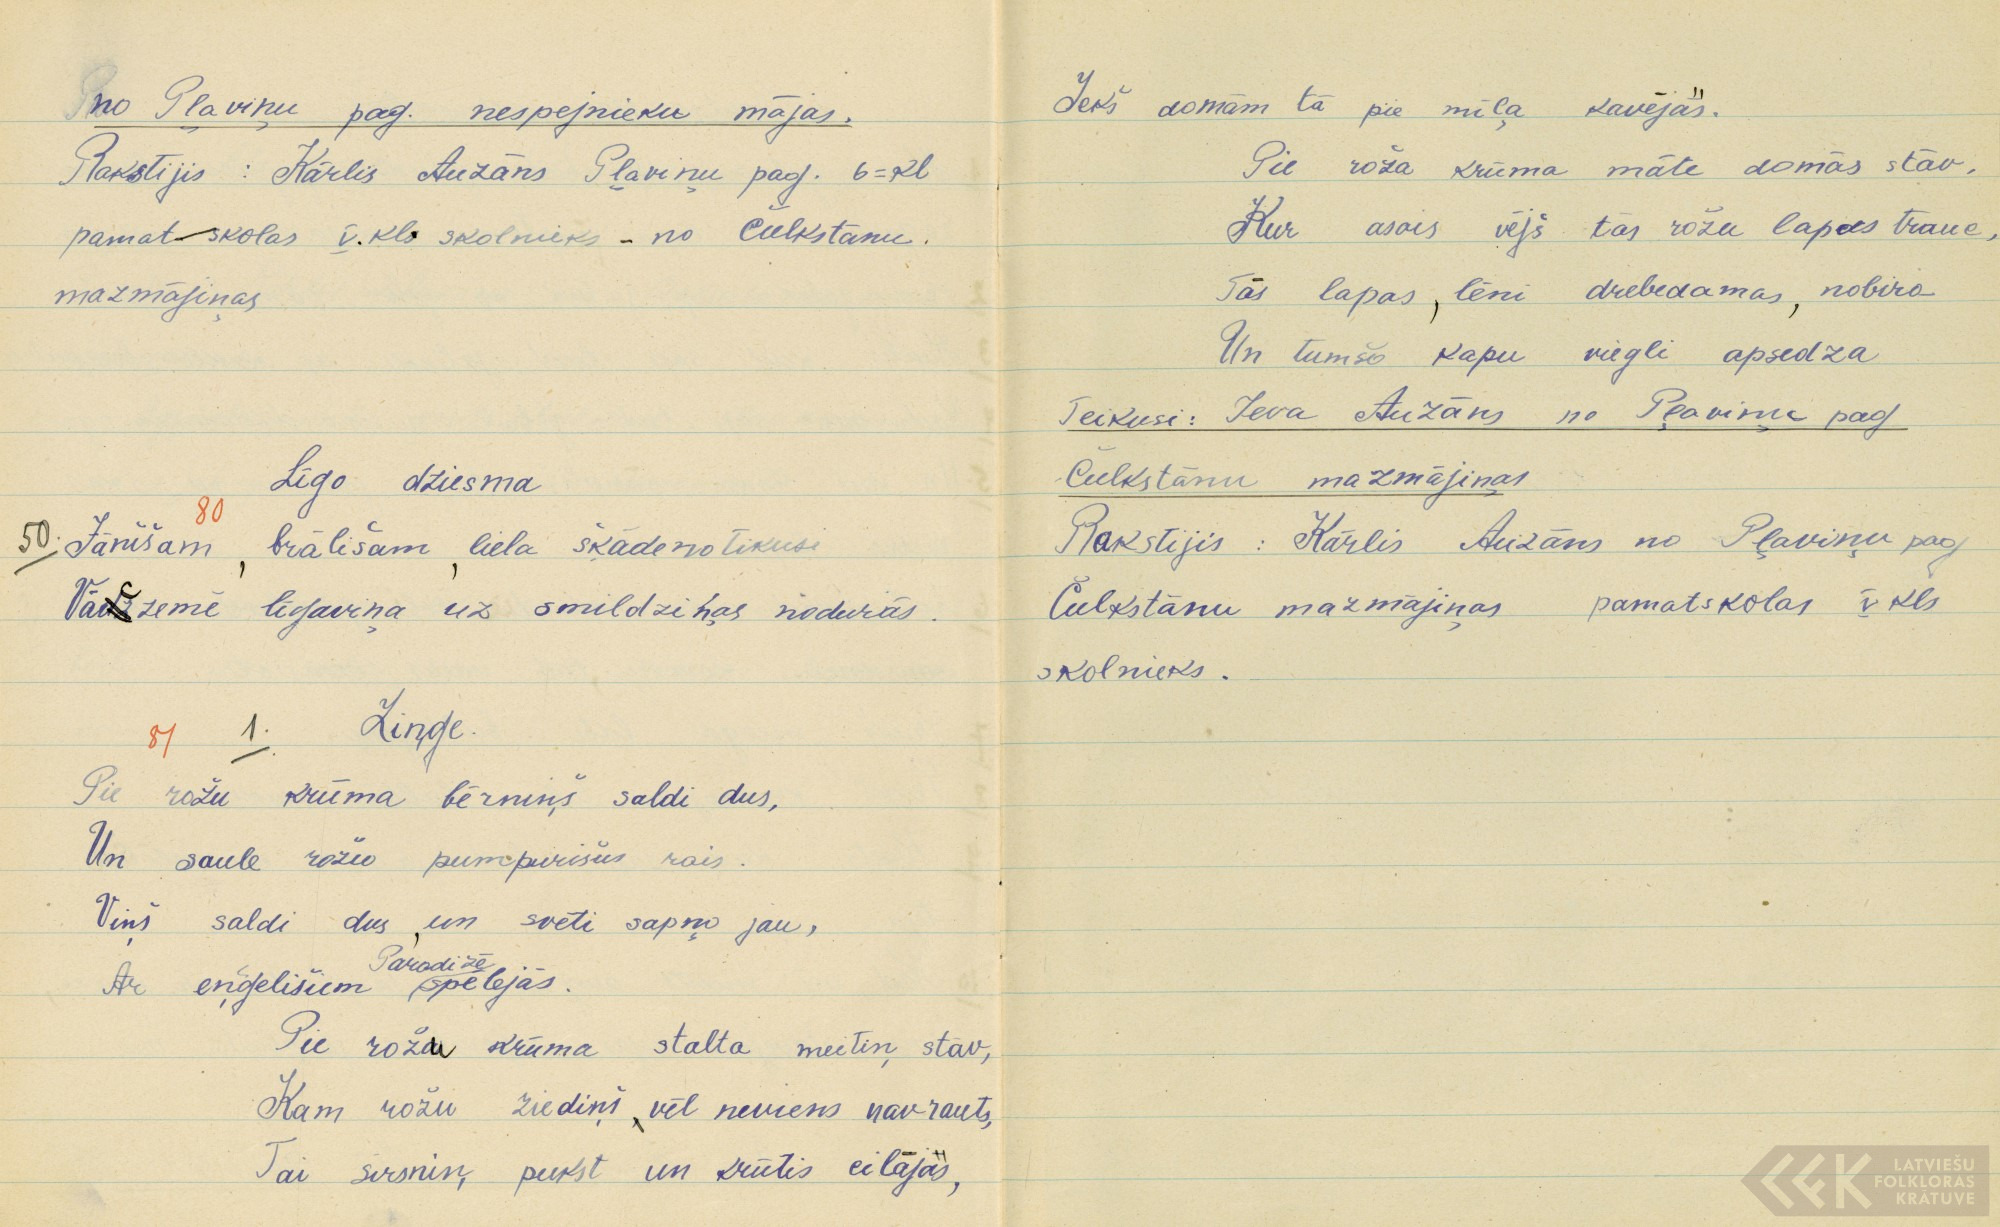 no Pļaviņu pag. nespejnieku mājas.
Rakstijis : Kārlis Auzāns Pļaviņu pag. 6=kl
pamat-skolas V. kls skolnieks - no Čulkstanu.
mazmājiņas
Līgo dziesma
80
50. Jānīšam, brālišam, liela škāde notikusi
zemē līgaviņa uz smildziņas nodurās.
81 1. Ziņģe.
Pie rožu krūma bērniņš saldi dus,
Un saule rožu pumpurišus rais.
Viņš saldi dus, un svēti sapņo jau,
Paradizē
Ar eņģelišiem spēlejās.
Pie rožu krūma stalta meitiņ stāv,
Kam rožu ziediņš, vēl neviens nav rauts,
Tai sirsniņ pukst un krūtis cilājās,
Iekš domām tā pie mīļa kavējās.
Pie roža krūma māte domās stāv,
Kur asais vējš tās rožu lapas trauc,
Tās lapas, lēni drebedamas, nobira
Un tumšo kapu viegli apsedza
Teikusi: Ieva Auzāns no Pļaviņu pag
Čulkstānu mazmājiņas
Rakstijis : Kārlis Auzāns no Pļaviņu pag
Čulkstānu mazmājiņas pamatskolas V kls
skolnieks.
LATVIEŠU
FOLKLORAS
KRĀTUVE